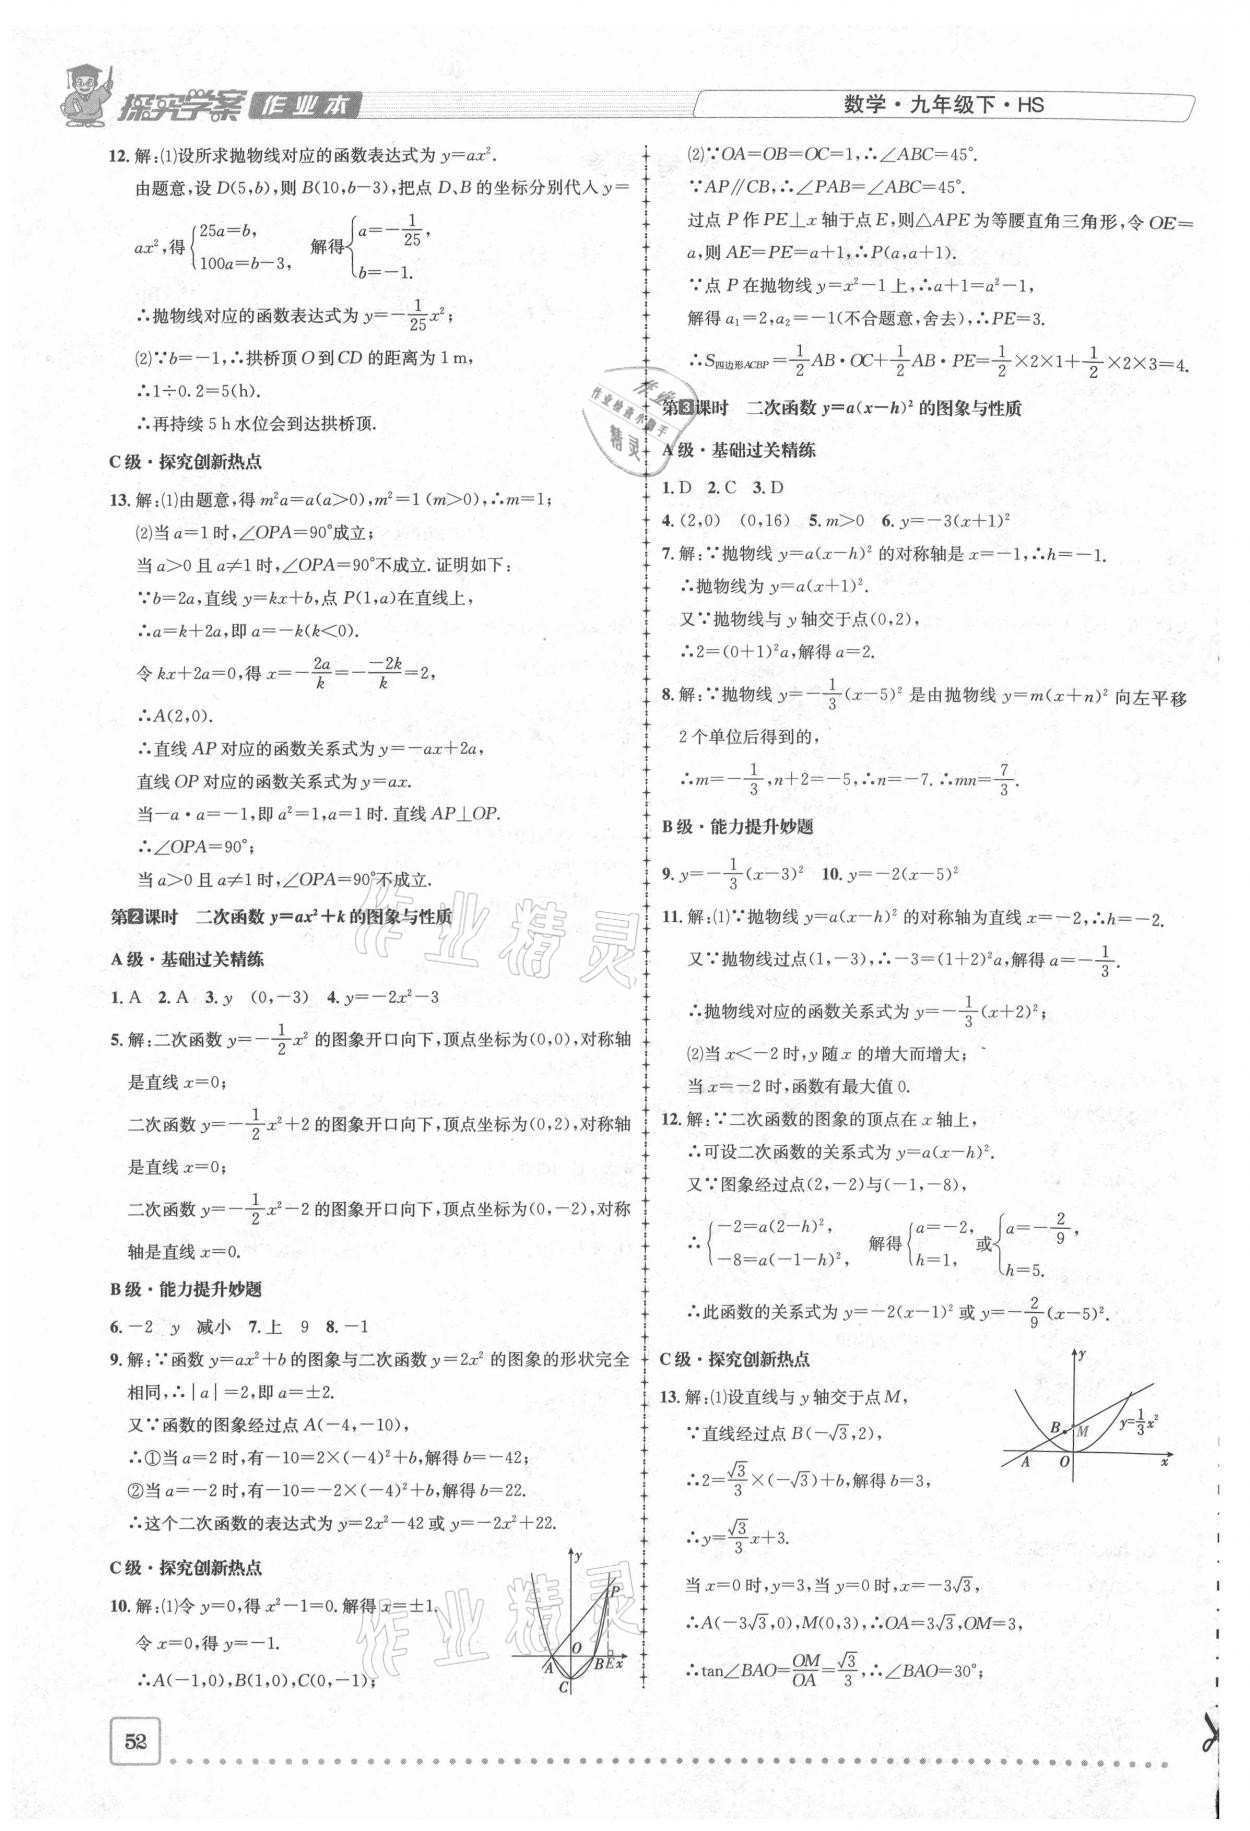 探究学案 作业本
数学·九年级下·HS
12. 解:(1)设所求抛物线对应的函数表达式为 y=ax².
由题意,设 D(5,b),则 B(10,b−3),把点 D、B 的坐标分别代入 y=
ax²,得{25a=b, 100a=b−3, 解得{a=−1/25, b=−1.
∴抛物线对应的函数表达式为 y=−1/25x²;
(2)∵b=−1,∴拱桥顶 O 到 CD 的距离为 1 m,
∴1÷0.2=5(h).
∴再持续 5 h 水位会到达拱桥顶.
C 级·探究创新热点
13. 解:(1)由题意,得 m²a=a(a>0),m²=1 (m>0),∴m=1;
(2)当 a=1 时,∠OPA=90°成立;
当 a>0 且 a≠1 时,∠OPA=90°不成立. 证明如下:
∵b=2a,直线 y=kx+b,点 P(1,a)在直线上,
∴a=k+2a,即 a=−k(k<0).
令 kx+2a=0,得 x=−2a/k=−−2k/k=2,
∴A(2,0).
∴直线 AP 对应的函数关系式为 y=−ax+2a,
直线 OP 对应的函数关系式为 y=ax.
当−a·a=−1,即 a²=1,a=1 时. 直线 AP⊥OP.
∴∠OPA=90°;
当 a>0 且 a≠1 时,∠OPA=90°不成立.
第2课时 二次函数 y=ax²+k 的图象与性质
A 级·基础过关精练
1. A 2. A 3. y (0,−3) 4. y=−2x²−3
5. 解:二次函数 y=−1/2x² 的图象开口向下,顶点坐标为(0,0),对称轴
是直线 x=0;
二次函数 y=−1/2x²+2 的图象开口向下,顶点坐标为(0,2),对称轴
是直线 x=0;
二次函数 y=−1/2x²−2 的图象开口向下,顶点坐标为(0,−2),对称
轴是直线 x=0.
B 级·能力提升妙题
6. −2 y 减小 7. 上 9 8. −1
9. 解:∵函数 y=ax²+b 的图象与二次函数 y=2x² 的图象的形状完全
相同,∴|a|=2,即 a=±2.
又∵函数的图象经过点 A(−4,−10),
∴①当 a=2 时,有−10=2×(−4)²+b,解得 b=−42;
②当 a=−2 时,有−10=−2×(−4)²+b,解得 b=22.
∴这个二次函数的表达式为 y=2x²−42 或 y=−2x²+22.
C 级·探究创新热点
10. 解:(1)令 y=0,得 x²−1=0. 解得 x=±1.
令 x=0,得 y=−1.
∴A(−1,0),B(1,0),C(0,−1);
y
P
A O B E x
C
(2)∵OA=OB=OC=1,∴∠ABC=45°.
∵AP∥CB,∴∠PAB=∠ABC=45°.
过点 P 作 PE⊥x 轴于点 E,则△APE 为等腰直角三角形,令 OE=
a,则 AE=PE=a+1,∴P(a,a+1).
∵点 P 在抛物线 y=x²−1 上,∴a+1=a²−1,
解得 a₁=2,a₂=−1(不合题意,舍去),∴PE=3.
∴S四边形ACBP=1/2AB·OC+1/2AB·PE=1/2×2×1+1/2×2×3=4.
第3课时 二次函数 y=a(x−h)² 的图象与性质
A 级·基础过关精练
1. D 2. C 3. D
4. (2,0) (0,16) 5. m>0 6. y=−3(x+1)²
7. 解:∵抛物线 y=a(x−h)² 的对称轴是 x=−1,∴h=−1.
∴抛物线为 y=a(x+1)².
又∵抛物线与 y 轴交于点(0,2),
∴2=(0+1)²a,解得 a=2.
8. 解:∵抛物线 y=−1/3(x−5)² 是由抛物线 y=m(x+n)² 向左平移
2 个单位后得到的,
∴m=−1/3,n+2=−5,∴n=−7. ∴mn=7/3.
B 级·能力提升妙题
9. y=−1/3(x−3)² 10. y=−2(x−5)²
11. 解:(1)∵抛物线 y=a(x−h)² 的对称轴为直线 x=−2,∴h=−2.
又∵抛物线过点(1,−3),∴−3=(1+2)²a,解得 a=−1/3.
∴抛物线对应的函数关系式为 y=−1/3(x+2)²;
(2)当 x<−2 时,y 随 x 的增大而增大;
当 x=−2 时,函数有最大值 0.
12. 解:∵二次函数的图象的顶点在 x 轴上,
∴可设二次函数的关系式为 y=a(x−h)².
又∵图象经过点(2,−2)与(−1,−8),
∴{−2=a(2−h)², −8=a(−1−h)², 解得{a=−2, h=1, 或{a=−2/9, h=5.
∴此函数的关系式为 y=−2(x−1)² 或 y=−2/9(x−5)².
C 级·探究创新热点
13. 解:(1)设直线与 y 轴交于点 M,
∵直线经过点 B(−√3,2),
∴2=√3/3×(−√3)+b,解得 b=3,
∴y=√3/3x+3.
当 x=0 时,y=3,当 y=0 时,x=−3√3,
∴A(−3√3,0),M(0,3),∴OA=3√3,OM=3,
∴tan∠BAO=OM/OA=√3/3,∴∠BAO=30°;
y
B M y=1/3x²
A O x
52
作业
作业检查小助手
精灵
作业精灵
作业精灵